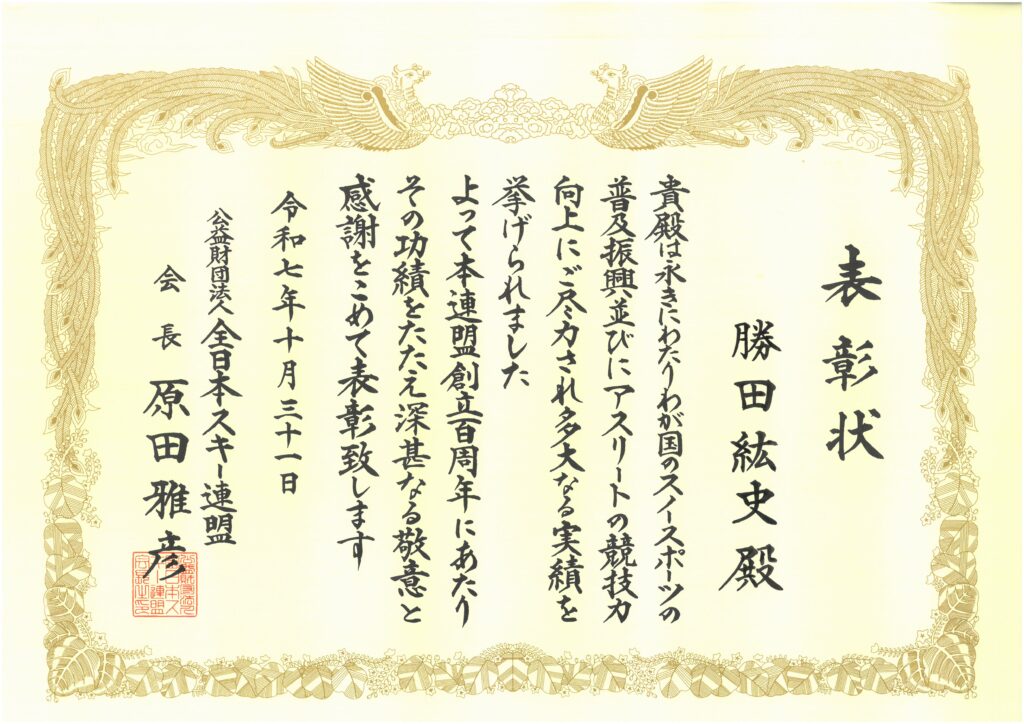 表彰状
勝田紘史殿
貴殿は永きにわたりわが国のスノースポーツの
普及振興並びにアスリートの競技力
向上にご尽力され多大なる実績を
挙げられました
よって本連盟創立百周年にあたり
その功績をたたえ深甚なる敬意と
感謝をこめて表彰致します
令和七年十月三十一日
公益財団法人全日本スキー連盟
会長 原田雅彦